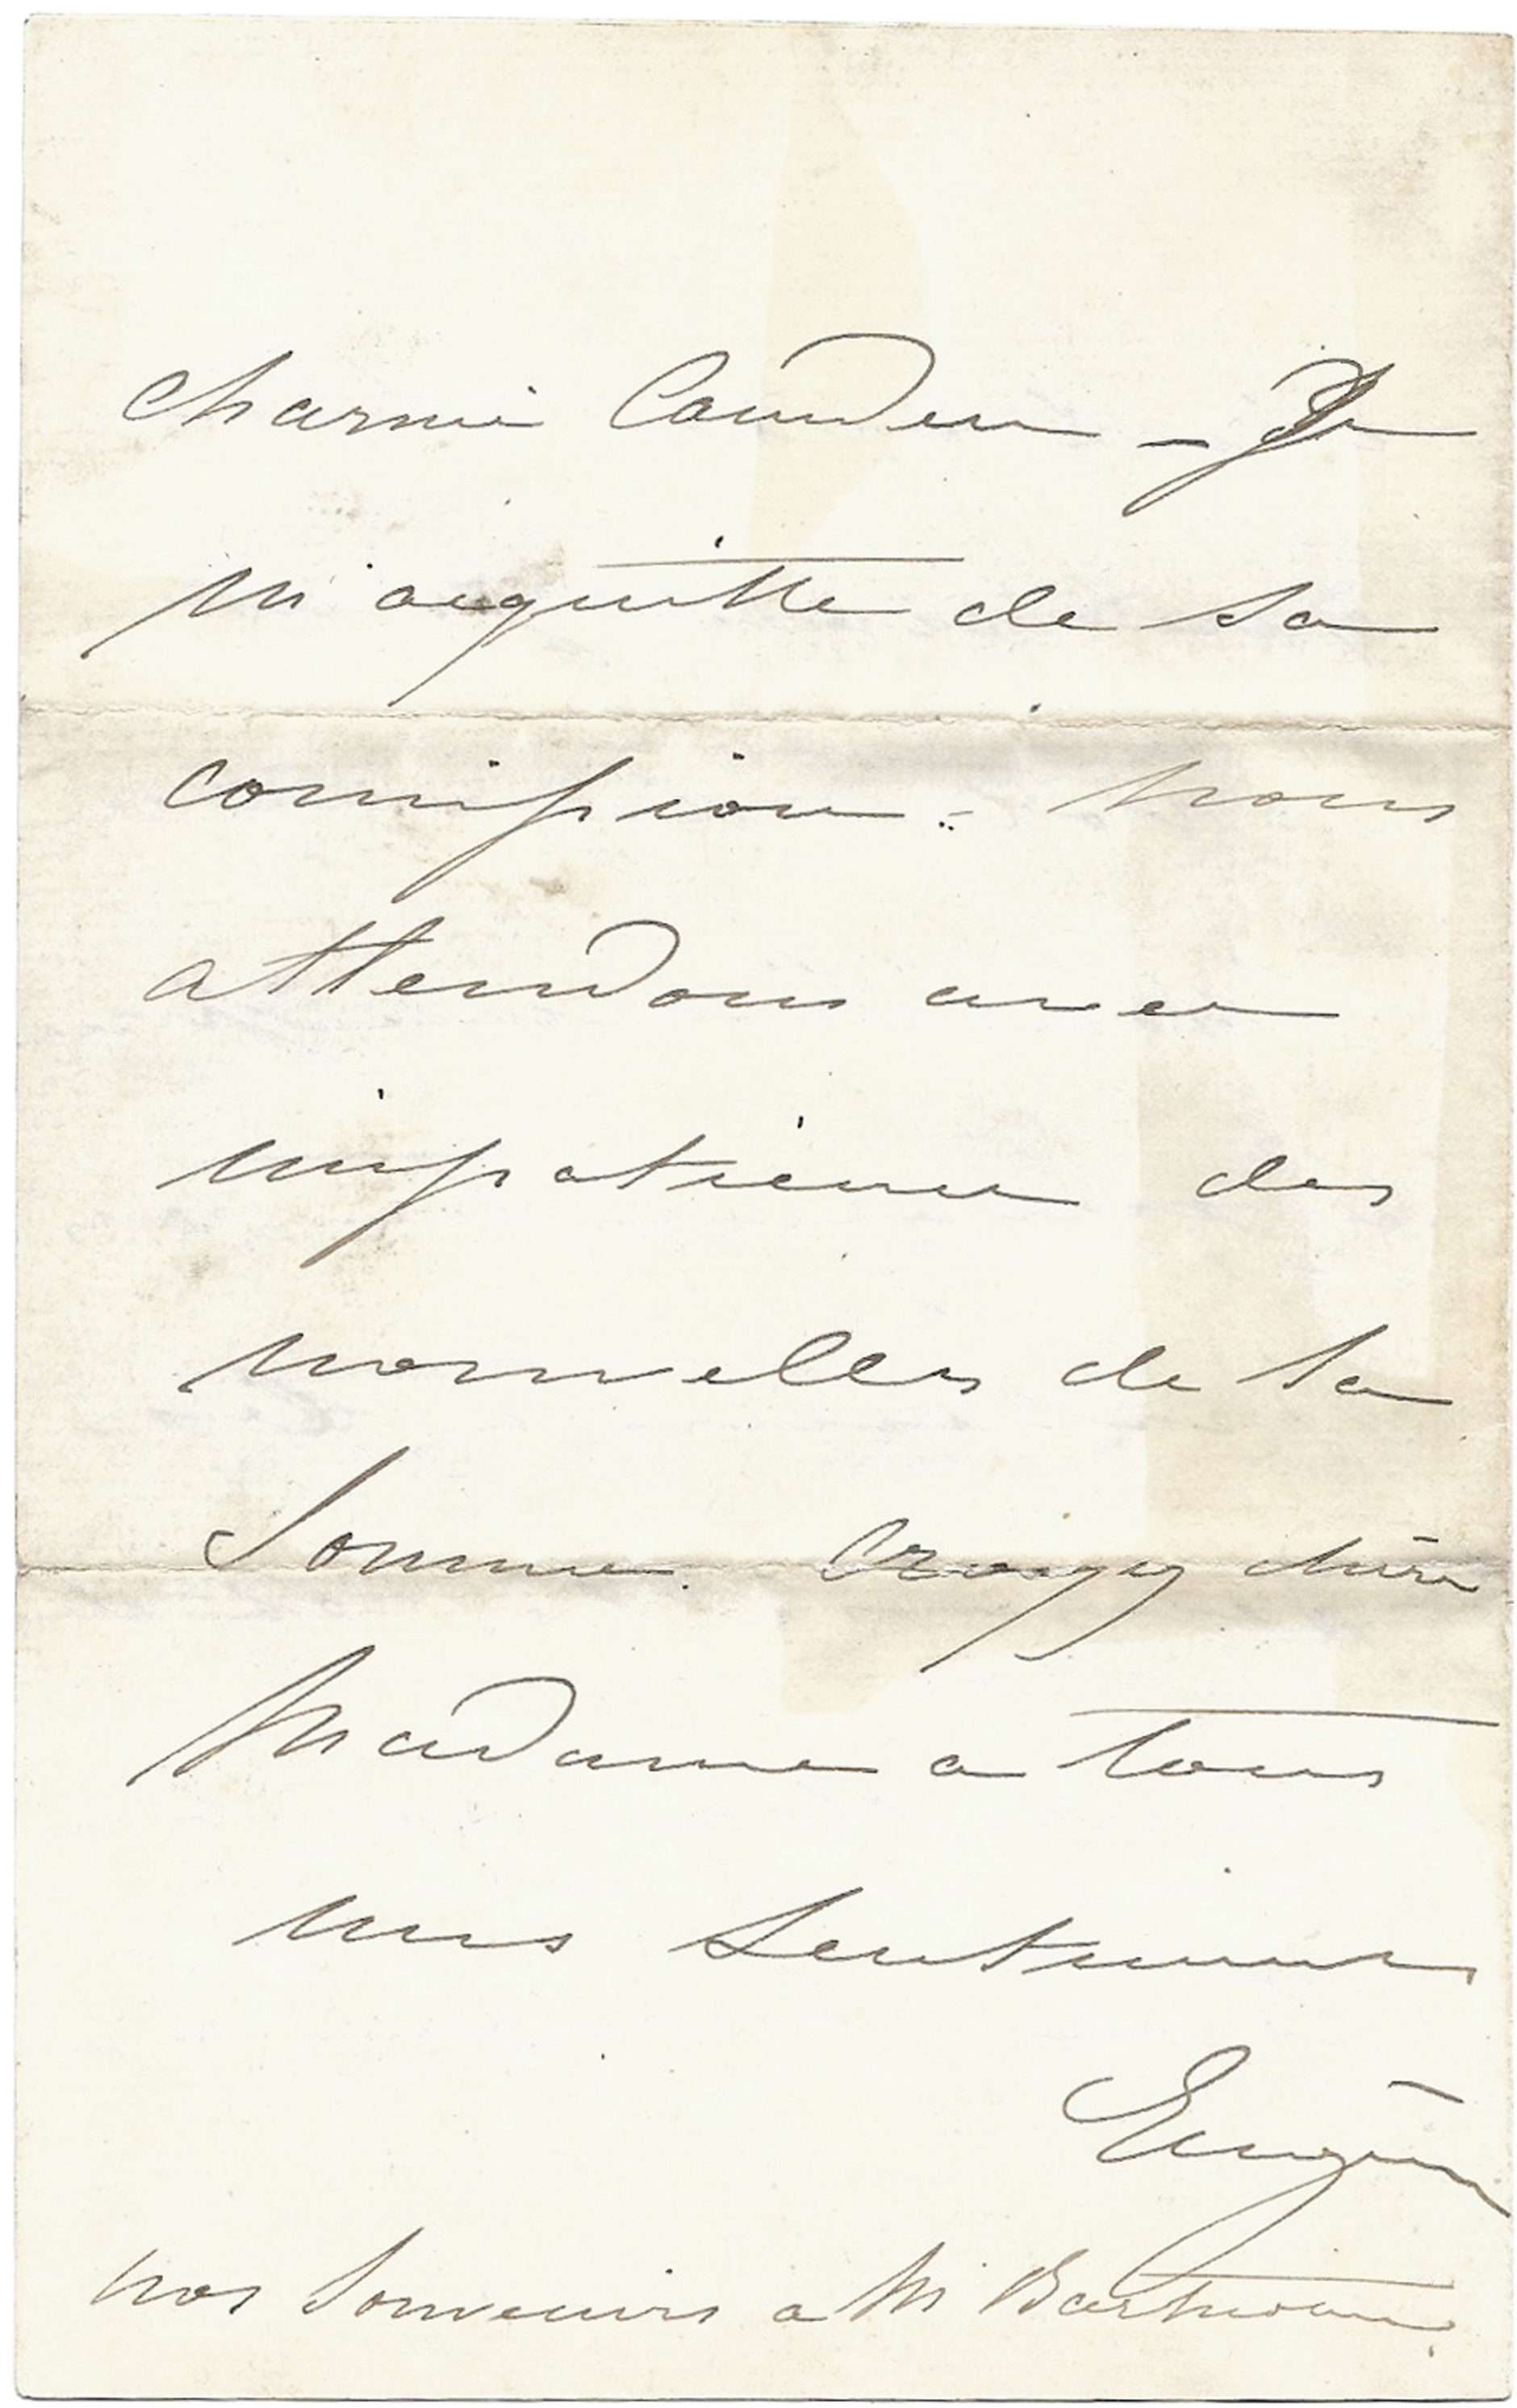 charmé
Je
m'acquitte de sa
comission : nous
attendons avec
impatience des
nouvelles de la
Somme. Croyez chère
Madame a tous
mes sentiments
Eugénie
nos souvenirs a Mr